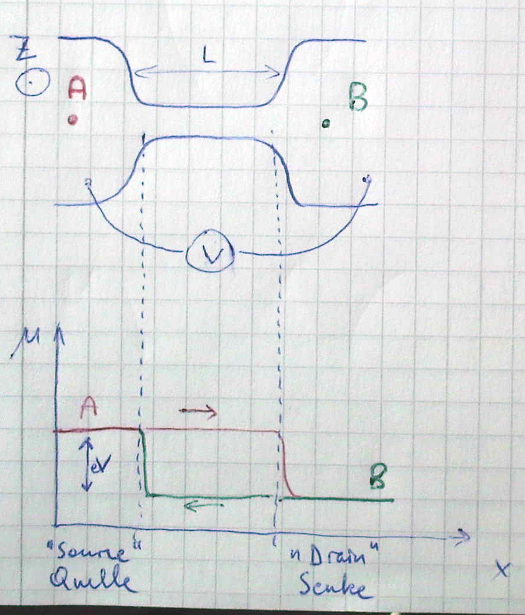 Z
L
A
B
V
μ
A
eV
B
"Source"
Quelle
"Drain"
Senke
x